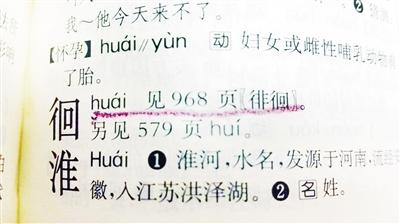 我～他今天来不了。
【怀孕】huái//yùn 动 妇女或雌性哺乳动物有
了胎。
徊 huái 见 968 页〖徘徊〗。
另见 579 页 huí。
淮 Huái ❶ 淮河,水名,发源于河南,流经安
徽,入江苏洪泽湖。❷ 名 姓。